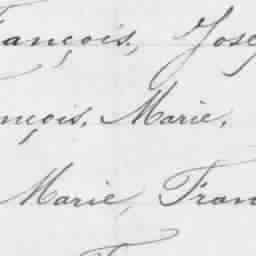 ançois, Jos
nçois, Marie,
Marie, Fran